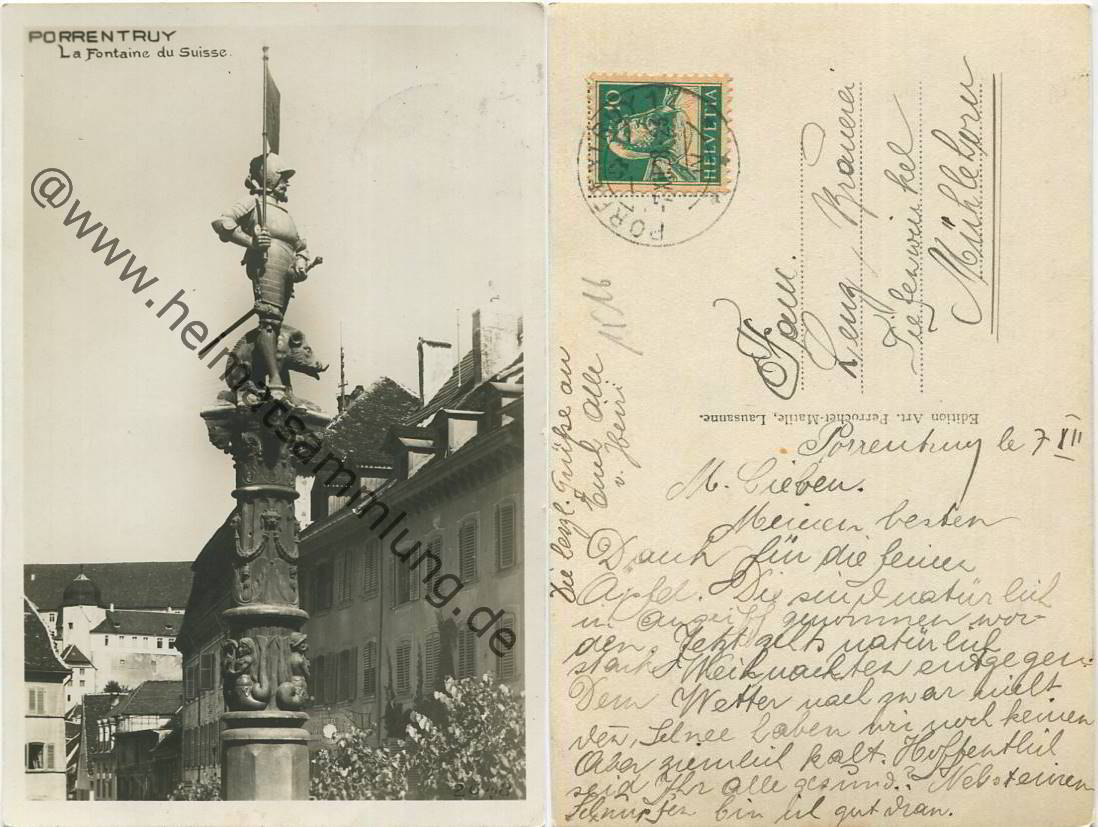 PORRENTRUY
La Fontaine du Suisse.
@www.heimatsammlung.de
HELVETIA
10
PORRENTRUY 1
Fam.
Lenz, Krauerei
Tiefenwinkel
Mühlehorn
Edition Art. Perrochet-Matile, Lausanne.
Porrentruy le 7 XII
M. Lieben.
Meinen besten
Dank für die feinen
Äpfel. Die sind natürlich
in Angriff genommen wor-
den. Jetzt gehts natürlich
stark Weihnachten entgegen.
Dem Wetter nach zwar nicht
den, Schnee haben wir noch keinen
Aber ziemlich kalt. Hoffentlich
seid Ihr alle gesund.? Nebst einem
Schnupfen bin ich gut dran.
Die herzl. Grüße an
Euch alle
v. Heiri